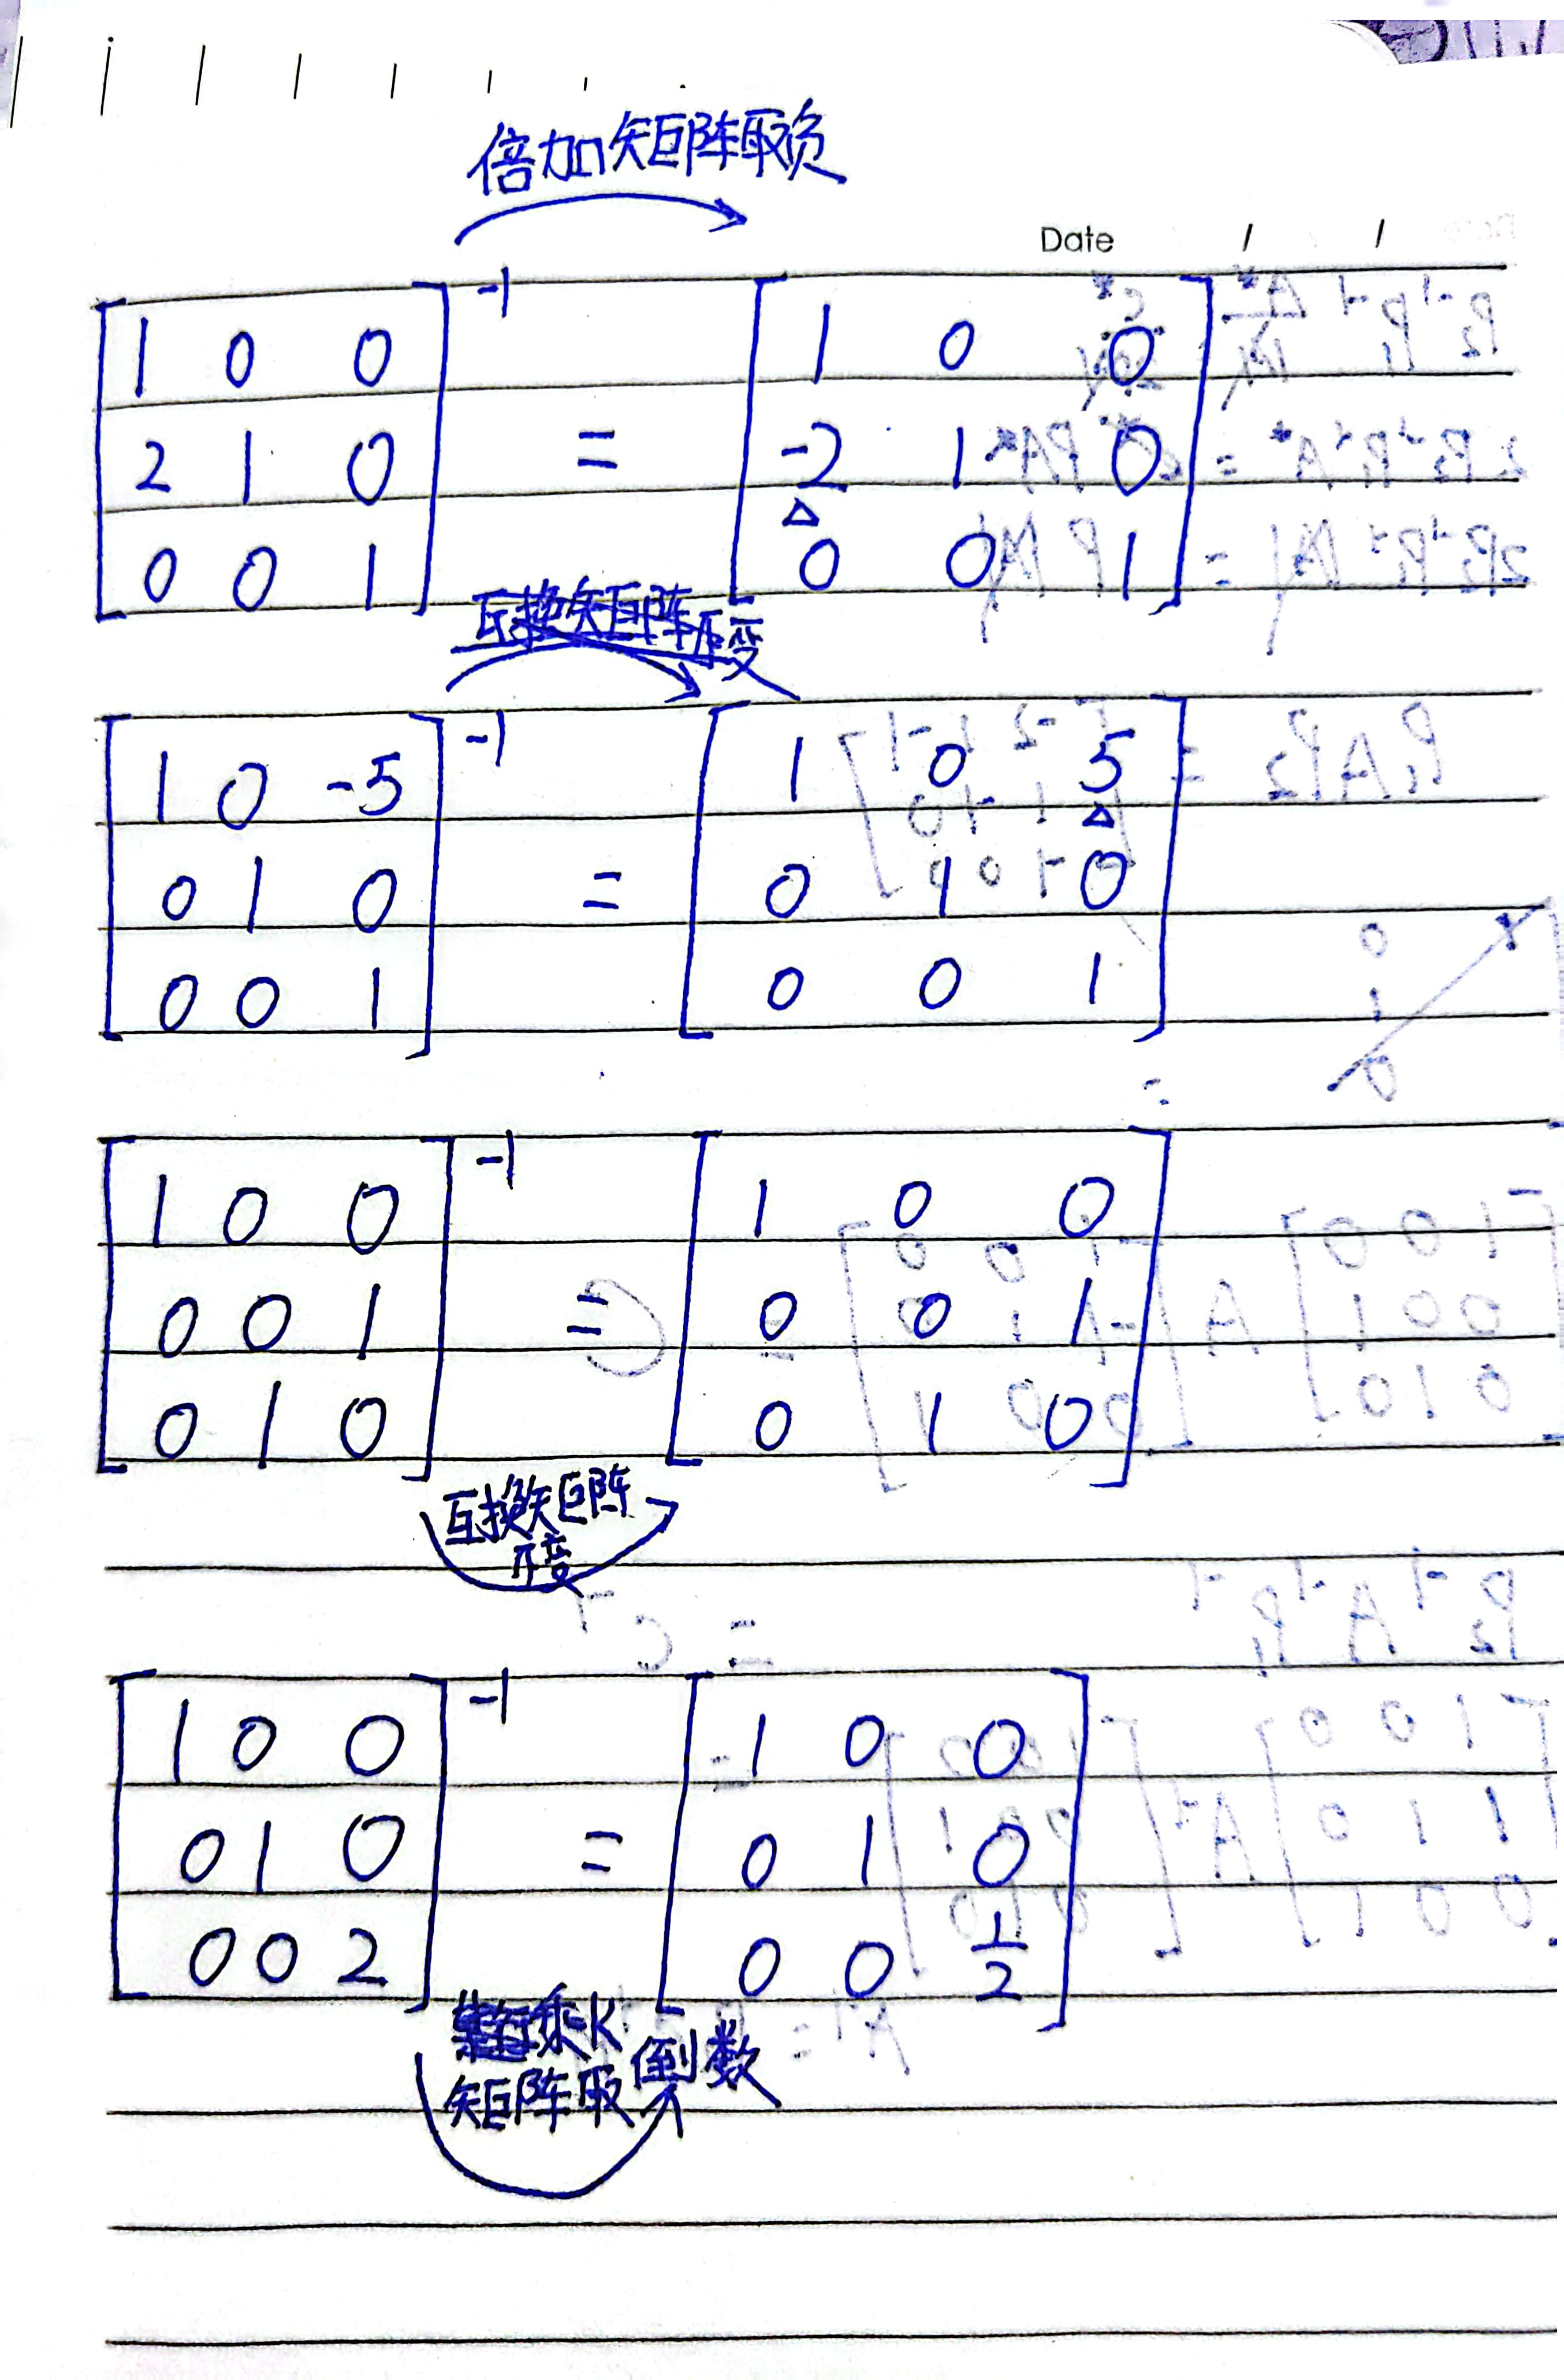 倍加矩阵取负
Date / /
[1 0 0; 2 1 0; 0 0 1]⁻¹ = [1 0 0; -2 1 0; 0 0 1]
互换矩阵不变
[1 0 -5; 0 1 0; 0 0 1]⁻¹ = [1 0 5; 0 1 0; 0 0 1]
[1 0 0; 0 0 1; 0 1 0]⁻¹ = [1 0 0; 0 0 1; 0 1 0]
互换矩阵
不变
[1 0 0; 0 1 0; 0 0 2]⁻¹ = [1 0 0; 0 1 0; 0 0 1/2]
乘K
矩阵取倒数